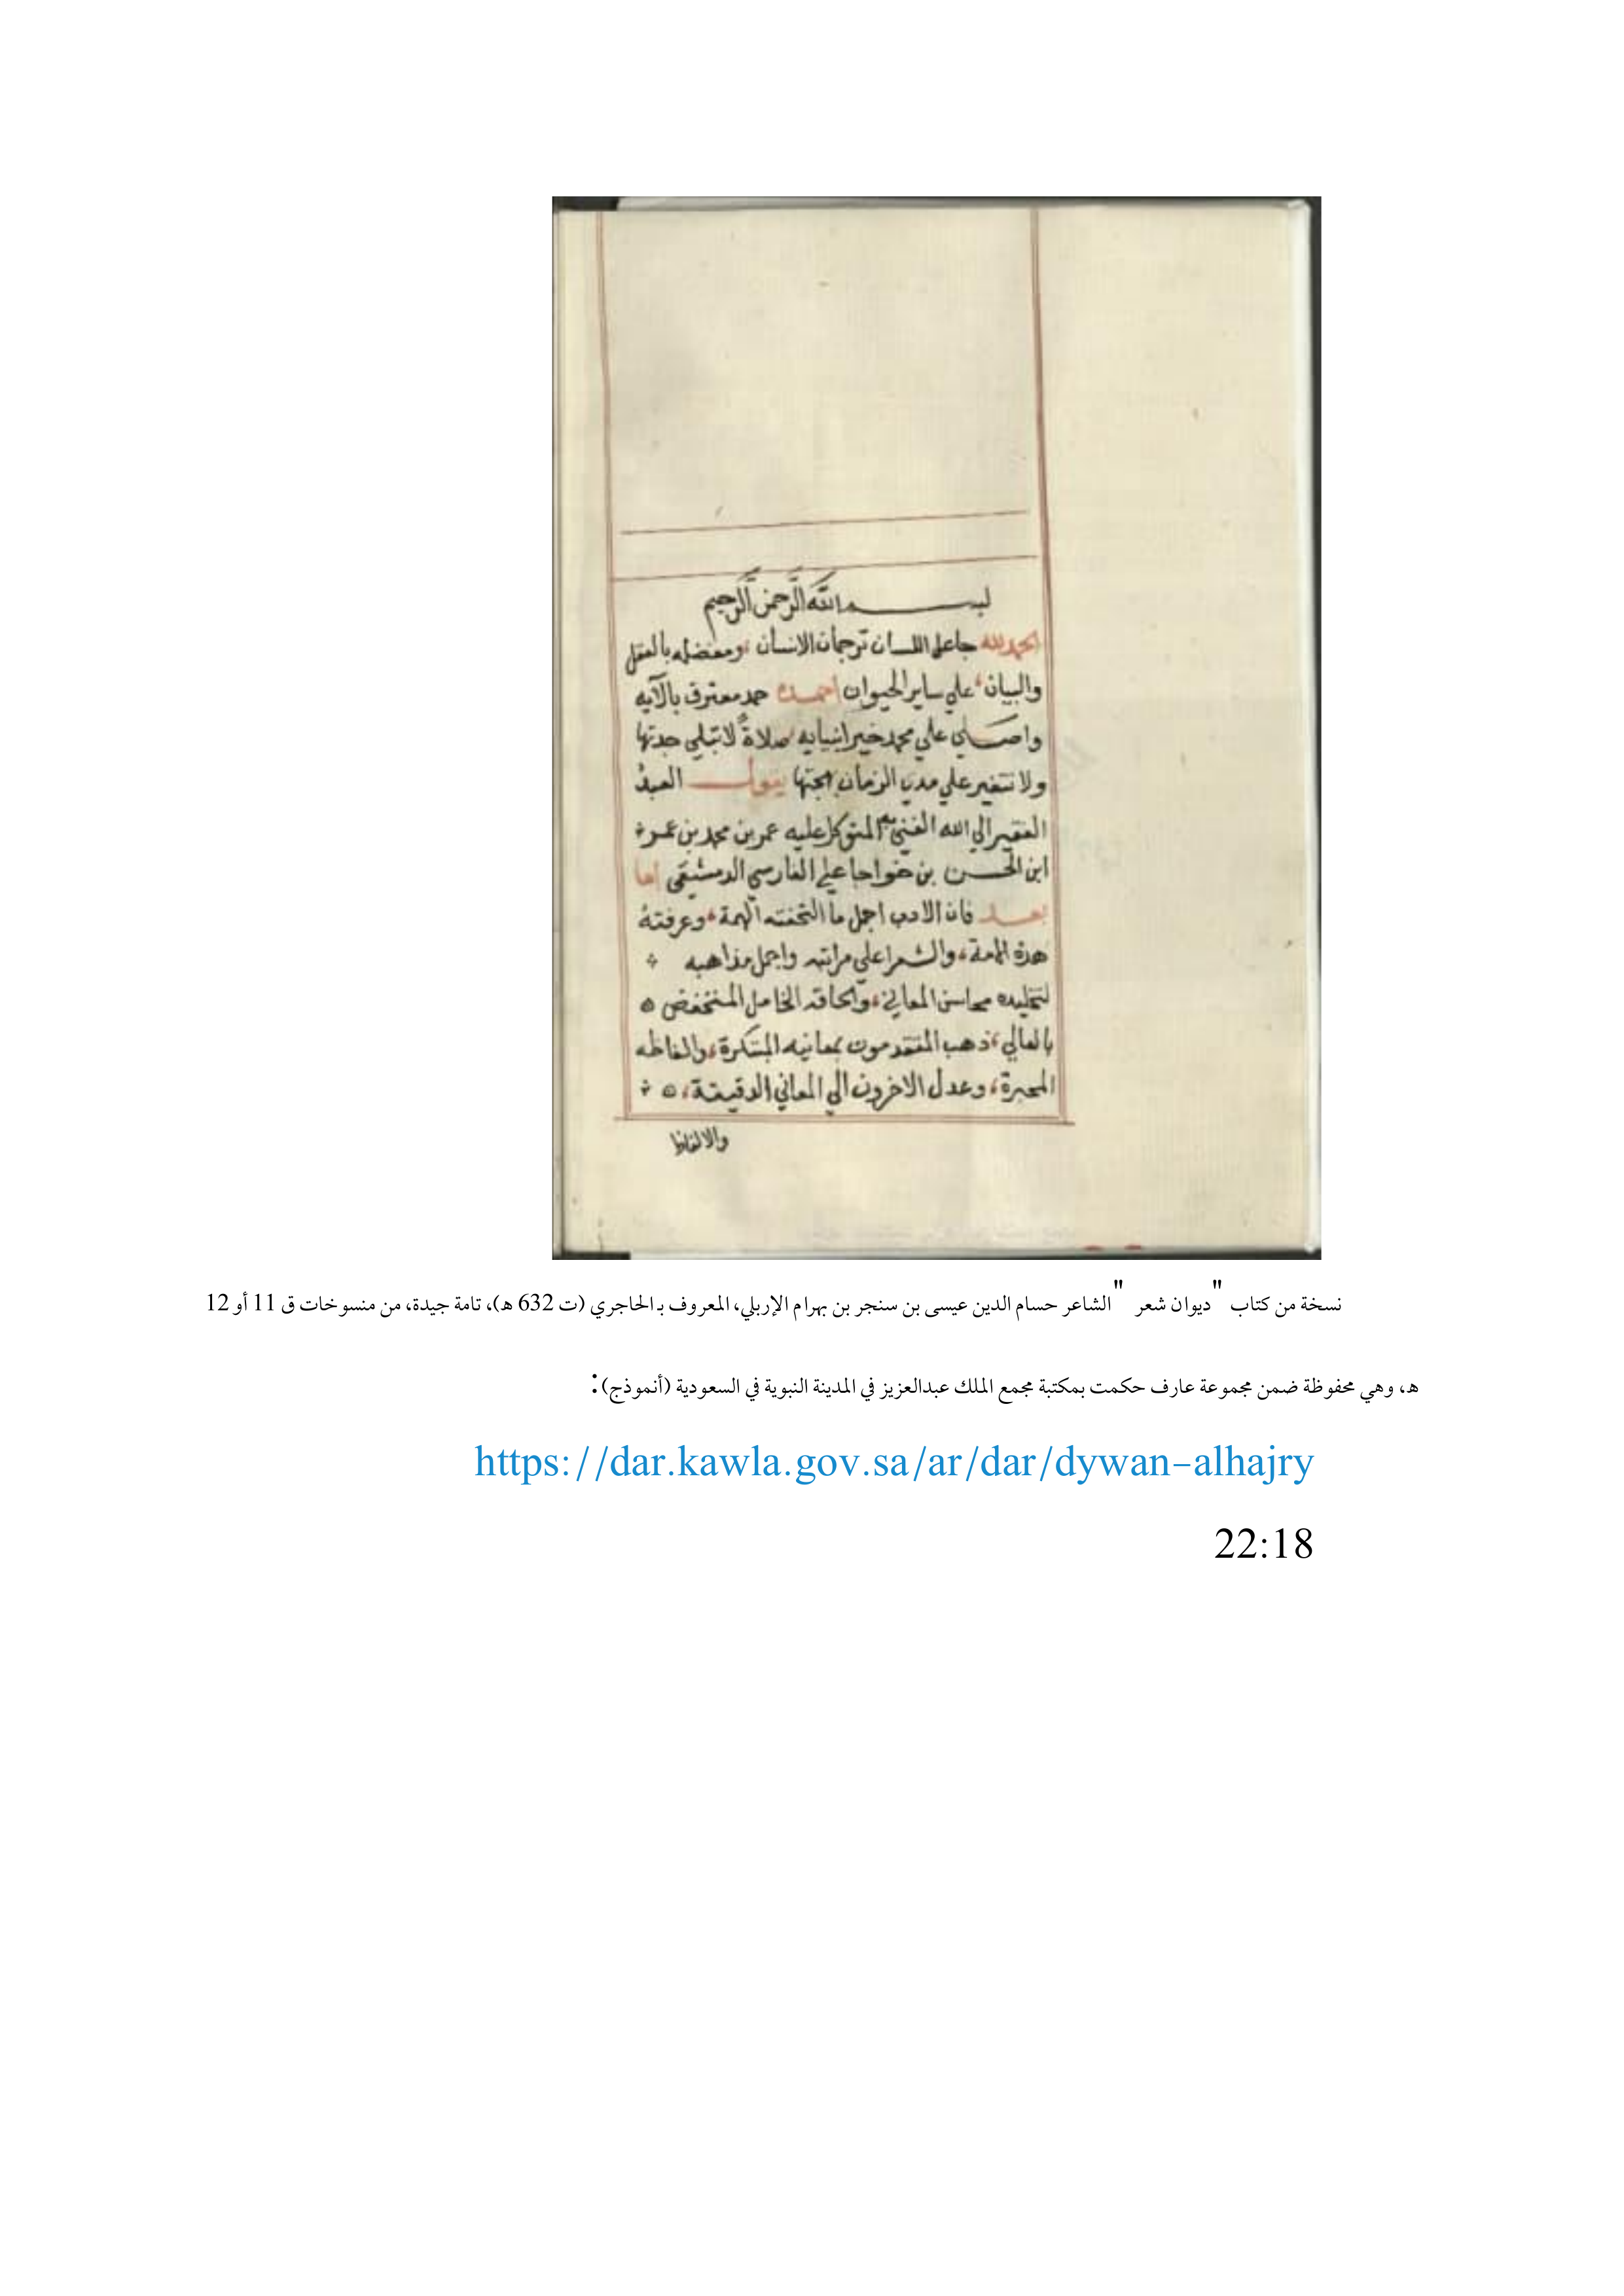 بسم الله الرحمن الرحيم
الحمد لله جاعل اللسان ترجمان الانسان، ومفضله بالعقل
والبيان، علي ساير الحيوان احمده حمد معترف بالآيه
واصلي علي محمد خير انبيايه صلاةً لا تبلي جدتها
ولا تتغير علي مدي الزمان بهجتها يقول العبدُ
الفقير الي الله الغني المتوكل عليه عمر بن محمد بن عمر
ابن الحسن بن خواجا علي الفارسي الدمشقي اما
بعد فان الادب اجمل ما التحفته الهمة، وعرفتهُ
هذه الامة، والشعر اعلي مراتبه واجمل مذاهبه
لتخليده محاسن المعاني، والحاقه الخامل المنخفض
بالعالي، ذهب المتقدمون بمعانيه المبتكرة، والفاظه
المحبرة، وعدل الاخرون الي المعاني الدقيقة،
والالفاظ
نسخة من كتاب "ديوان شعر" الشاعر حسام الدين عيسى بن سنجر بن بهرام الإربلي، المعروف بـ الحاجري (ت 632 ه)، تامة جيدة، من منسوخات ق 11 أو 12
ه، وهي محفوظة ضمن مجموعة عارف حكمت بمكتبة مجمع الملك عبدالعزيز في المدينة النبوية في السعودية (أنموذج):
https://dar.kawla.gov.sa/ar/dar/dywan-alhajry
22:18